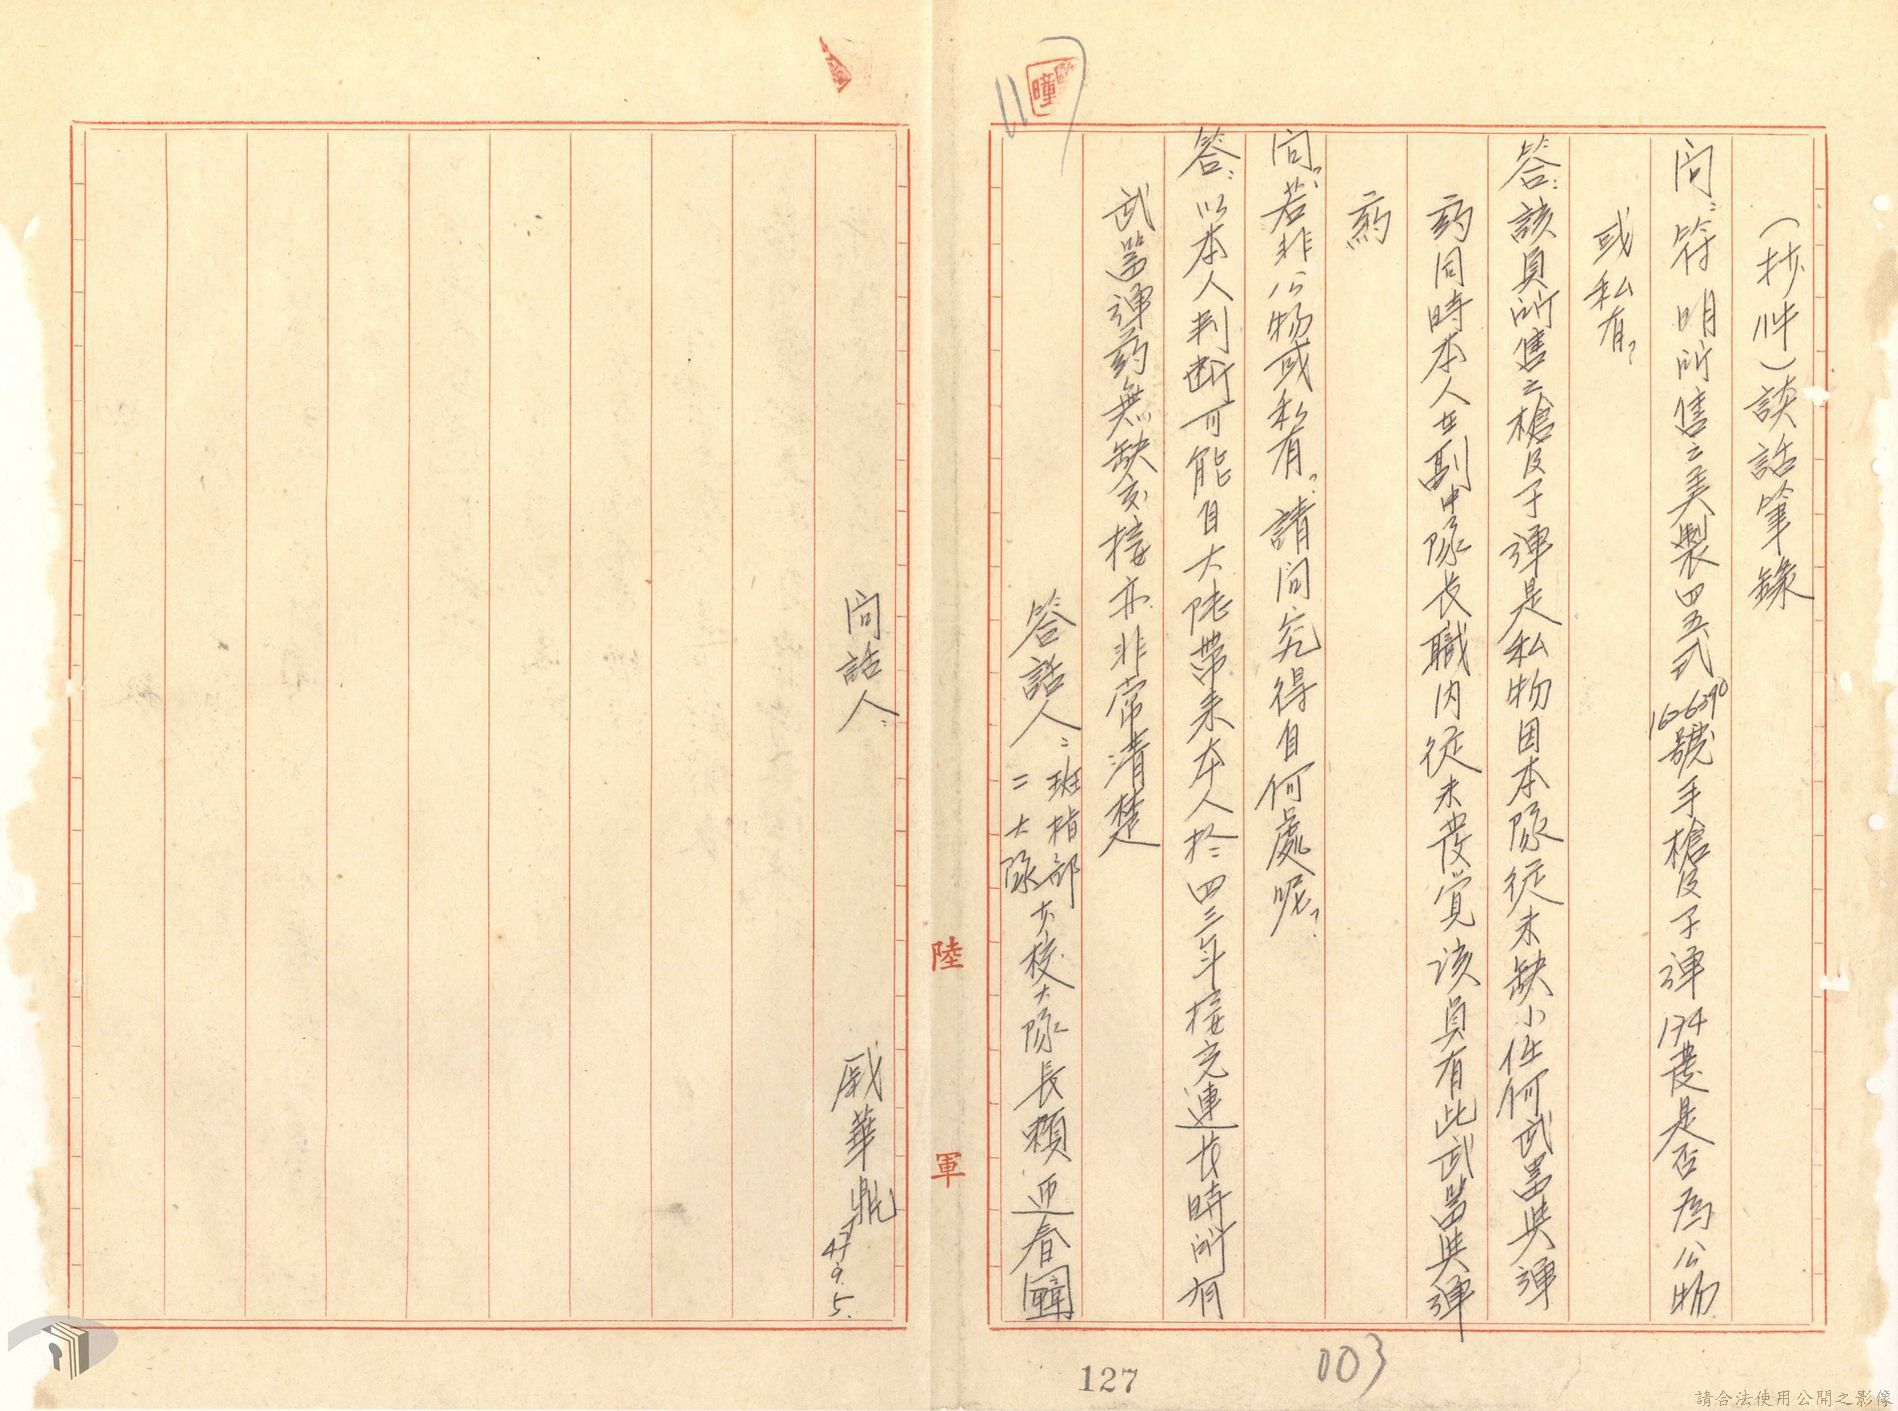 (抄件)談話筆錄
問:符明所售之美製四五式1626390號手槍及子彈174發是否為公物
或私有?
答:該員所售之槍及子彈是私物因本隊從未缺小任何武器與彈
药同時本人在副中隊長職内從未發覚该員有此武器與彈
药
問:若非公物或私有?請問究得自何處呢?
答:以本人判断可能自大陸带来本人於四三年接充連长時所有
武器彈药無缺交接亦非常清楚
答話人:班指部二大隊少校大隊長賴迎春
問話人: 戚華鼎 47. 9. 5.
陸軍
127
003
11
瞳
請合法使用公開之影像